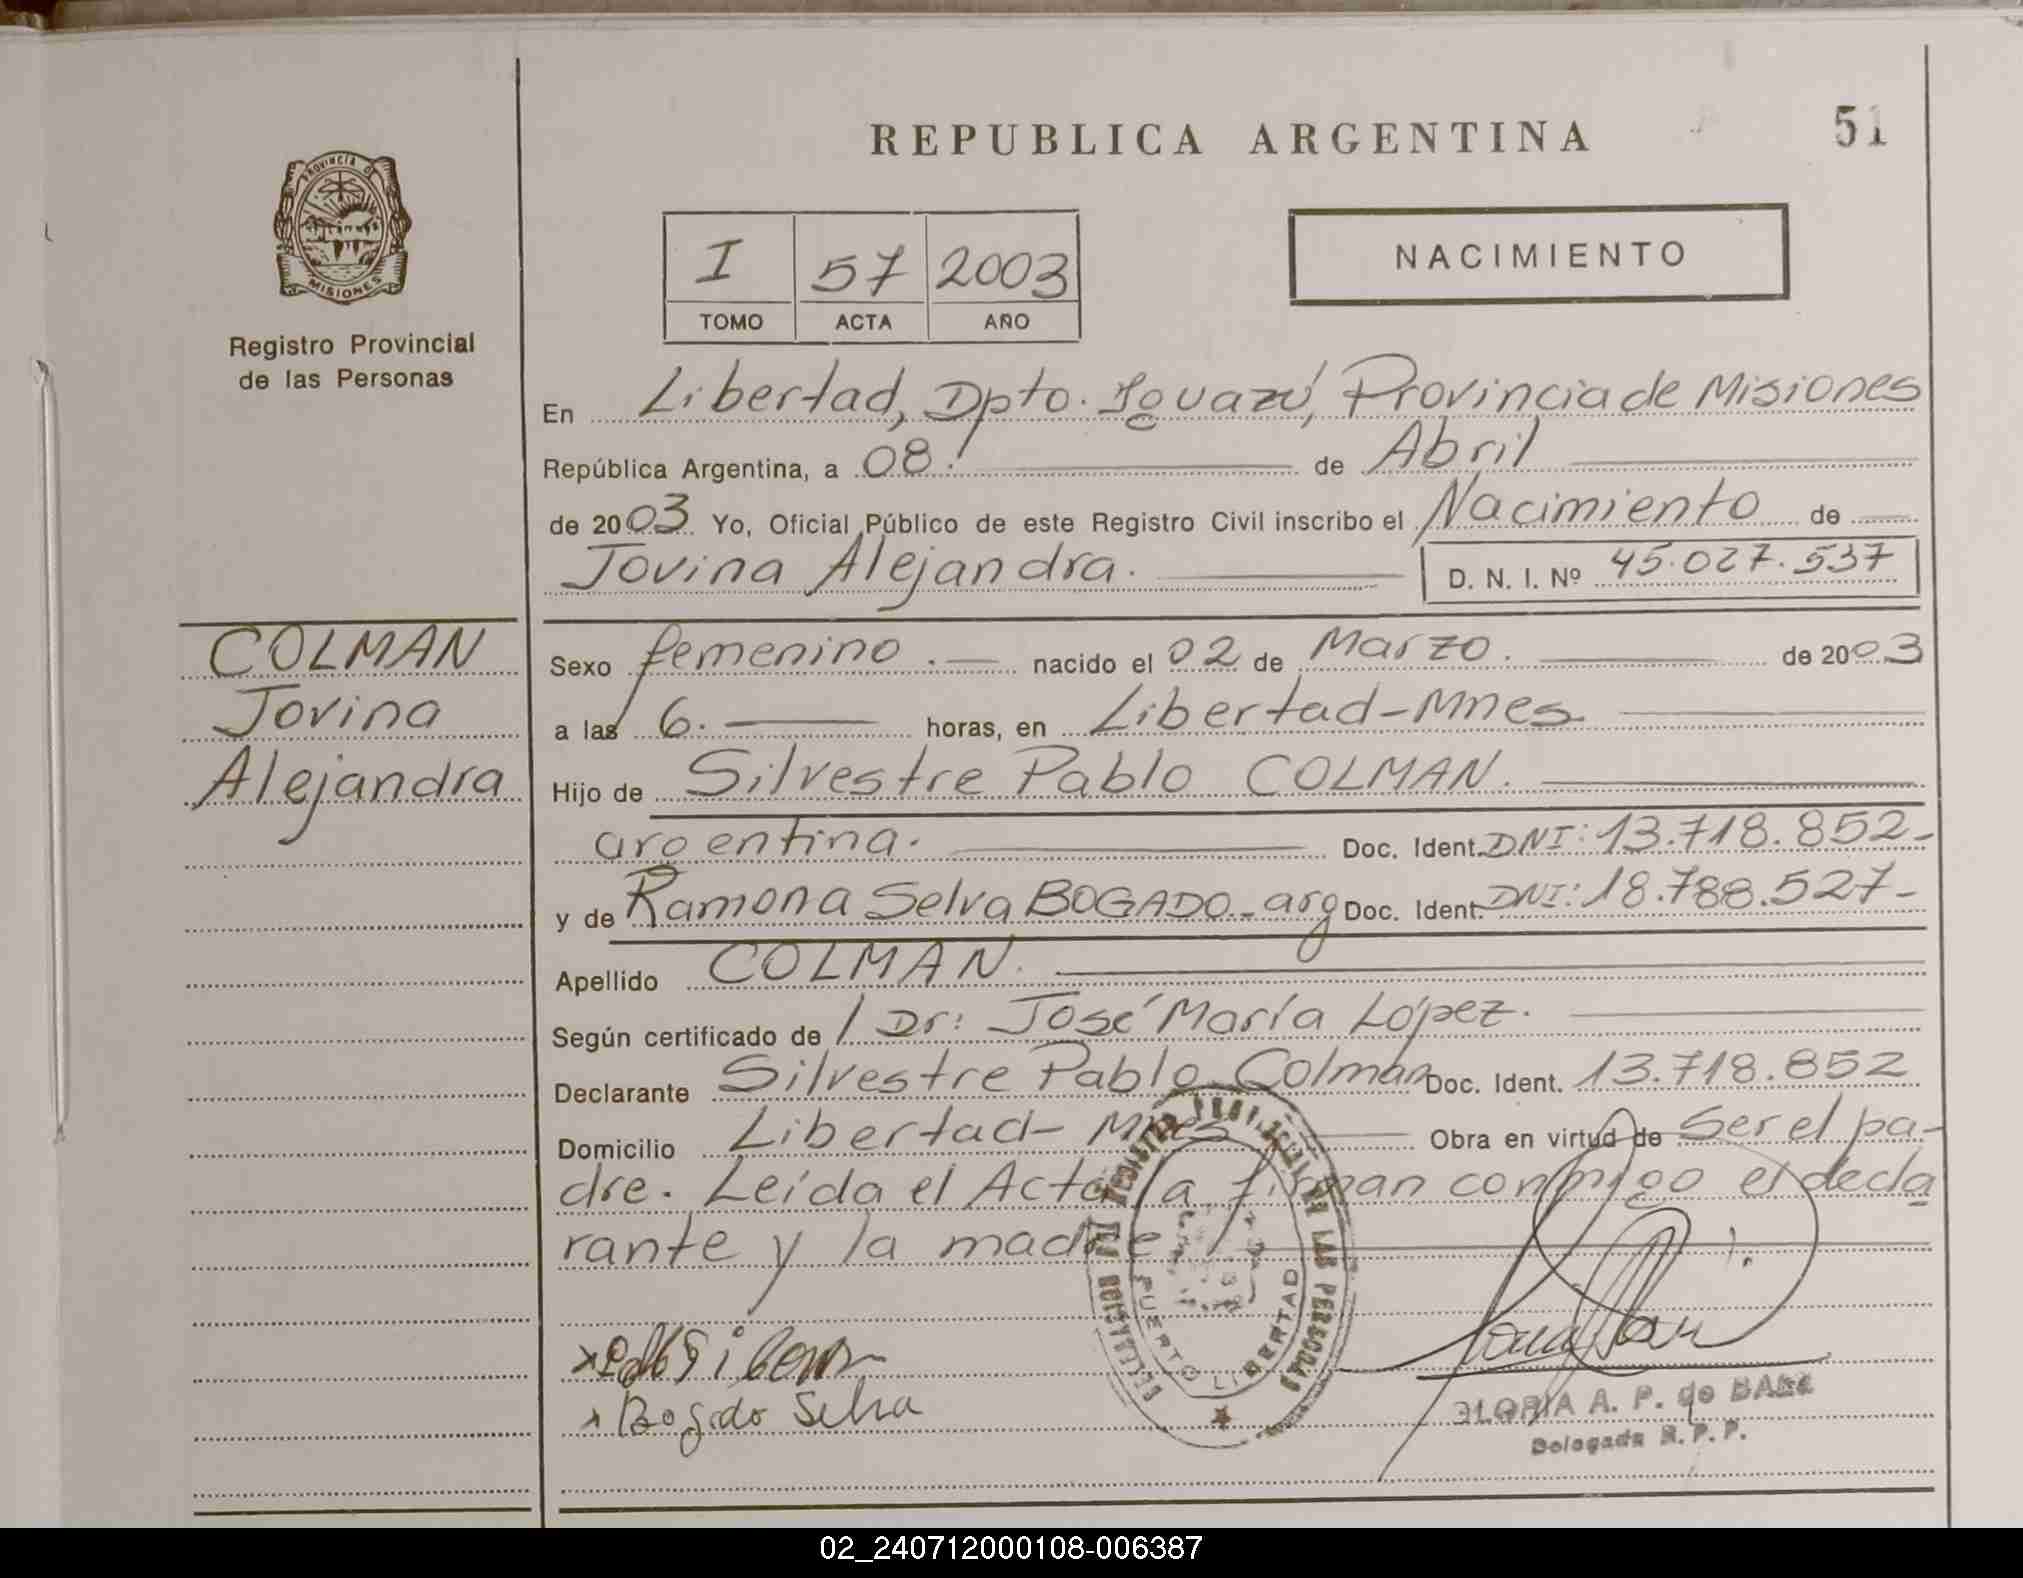 REPUBLICA ARGENTINA
51
PROVINCIA DE
MISIONES
Registro Provincial
de las Personas
I 57 2003
TOMO ACTA AÑO
NACIMIENTO
En Libertad, Dpto. Iguazú, Provincia de Misiones
República Argentina, a 08. de Abril
de 2003 Yo, Oficial Público de este Registro Civil inscribo el Nacimiento de
Jovina Alejandra. D. N. I. Nº 45.027.537
COLMAN
Jovina
Alejandra
Sexo femenino. nacido el 02 de Marzo. de 2003
a las 6. horas, en Libertad-Mnes.
Hijo de Silvestre Pablo COLMAN.
argentina. Doc. Ident. DNI: 13.718.852-
y de Ramona Selva BOGADO-arg Doc. Ident. DNI: 18.788.527-
Apellido COLMAN.
Según certificado de / Dr: José María López.
Declarante Silvestre Pablo Colman Doc. Ident. 13.718.852
Domicilio Libertad- Mnes Obra en virtud de Ser el pa-
dre. Leída el Acta la firman conmigo el decla
rante y la madre
REGISTRO PROVINCIAL DE LAS PERSONAS
PUERTO LIBERTAD
Bogado Selva
GLORIA A. P. de
Delegada R. P. P.
02_240712000108-006387